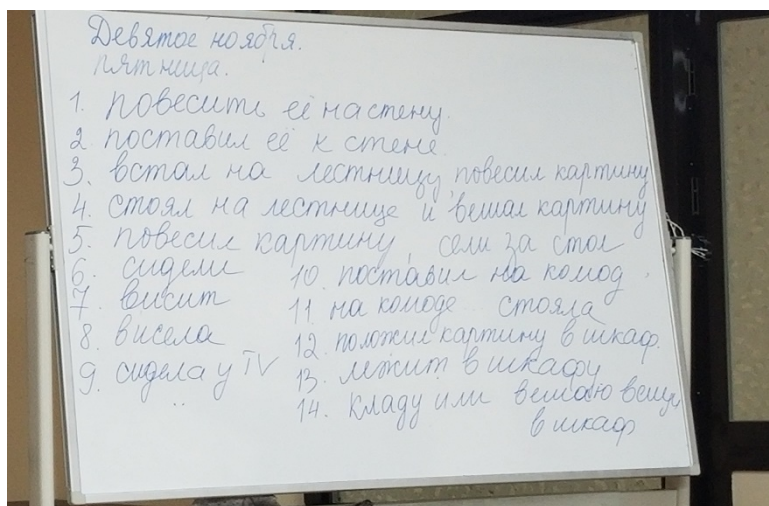 Девятое ноября.
пятница.
1. повесить её на стену.
2. поставил её к стене
3. встал на лестницу, повесил картину
4. стоял на лестнице и вешал картину
5. повесил картину, сели за стол
6. сидели
7. висит
8. висела
9. сидела у TV
10. поставил на комод.
11. на комоде стояла
12. положил картину в шкаф.
13. лежит в шкафу
14. кладу или вешаю вещи
в шкаф